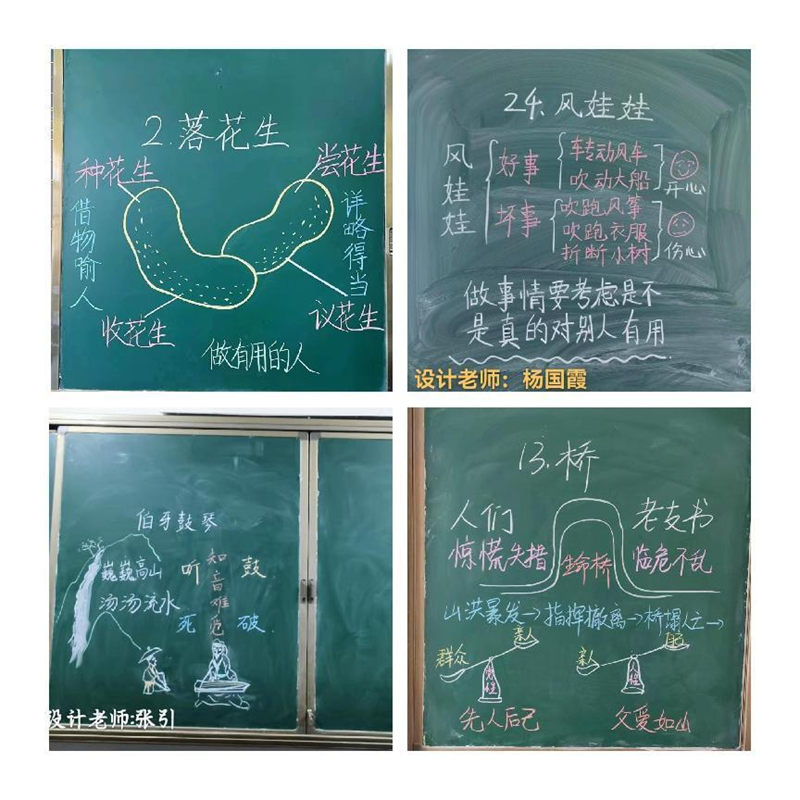 2.落花生
种花生
尝花生
借物喻人
详略得当
收花生
议花生
做有用的人
24.风娃娃
风娃娃
好事
车转动风车
吹动大船
开心
坏事
吹跑风筝
吹跑衣服
折断小树
伤心
做事情要考虑是不
是真的对别人有用
设计老师：杨国霞
伯牙鼓琴
巍巍高山
汤汤流水
听
知音难觅
鼓
死
破
设计老师:张引
13.桥
人们
惊慌失措
生命桥
老支书
临危不乱
山洪暴发→指挥撤离→桥塌人亡→
群众
亲人
亲人
先人后己
父爱如山